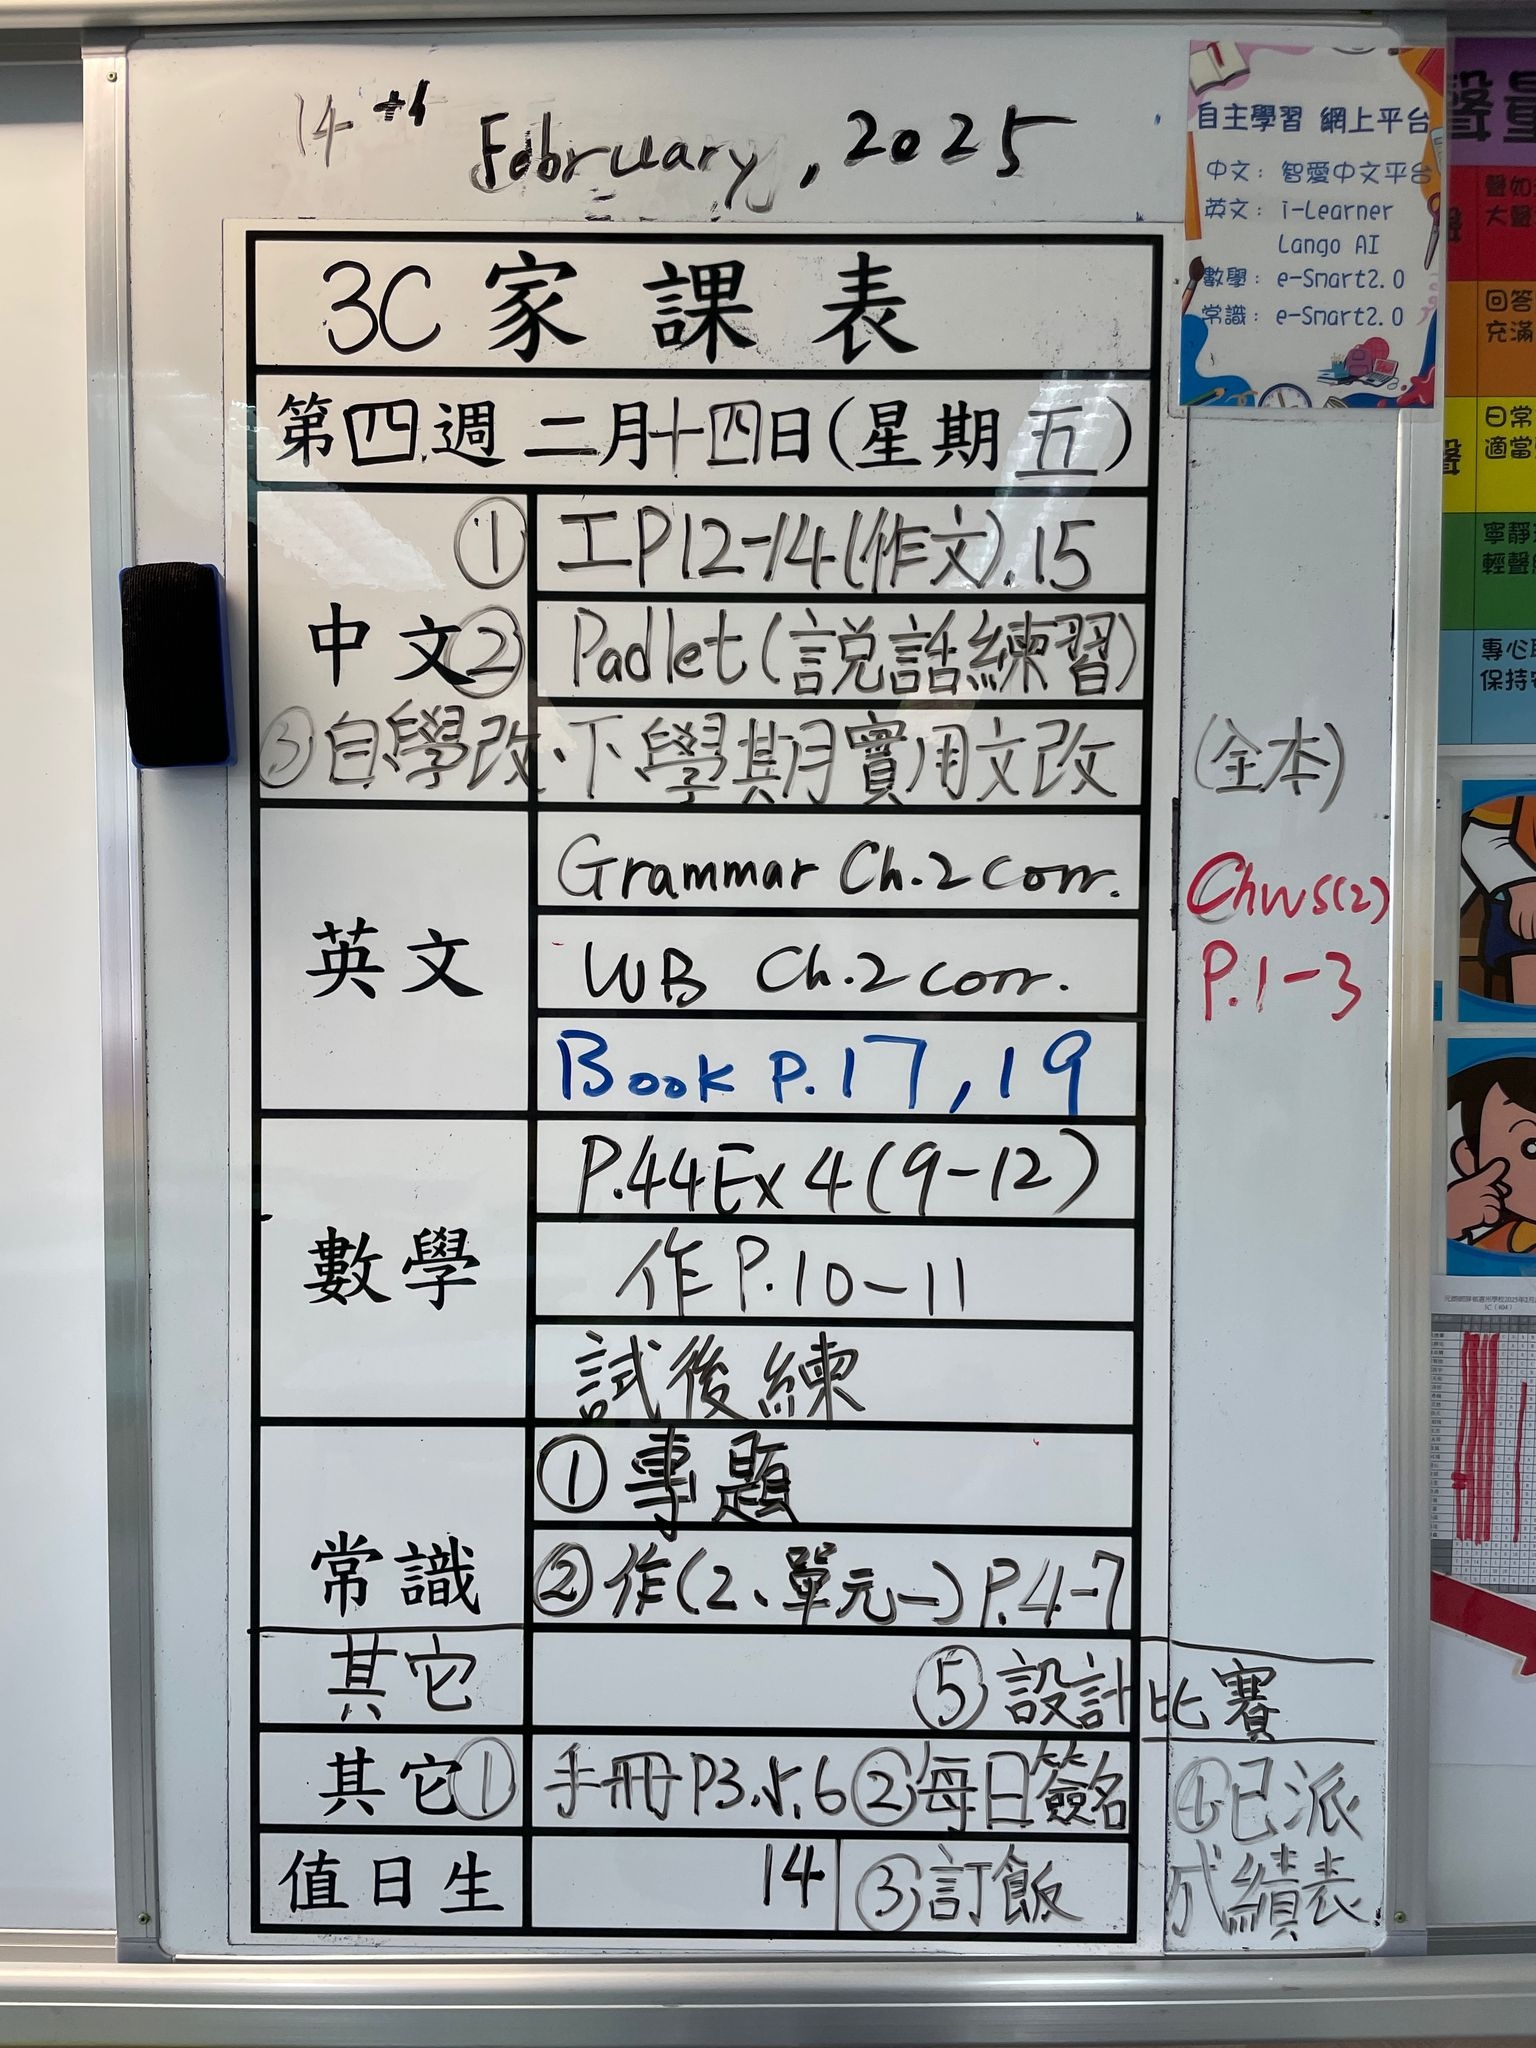 14th February, 2025
3C 家課表
第四週 二月十四日(星期五)
中文
① 工P12-14(作文).15
② Padlet(説話練習)
③ 自學改、下學期實用文改 (全本)
英文
Grammar Ch.2 corr.
WB Ch.2 corr.
Book P.17, 19
Chws(2)
P.1-3
數學
P.44 Ex 4 (9-12)
作 P.10-11
試後練
常識
① 專題
② 作(2、單元一) P.4-7
其它
⑤ 設計比賽
其它
① 手冊P3.5.6 ② 每日簽名
④ 已派
成績表
值日生
14
③ 訂飯
自主學習 網上平台
中文：智愛中文平台
英文：i-Learner
Lango AI
數學：e-Smart2.0
常識：e-Smart2.0
聲量
聲如
大聲
回答
充滿
日常
適當
寧靜
輕聲
專心
保持
3C (404)